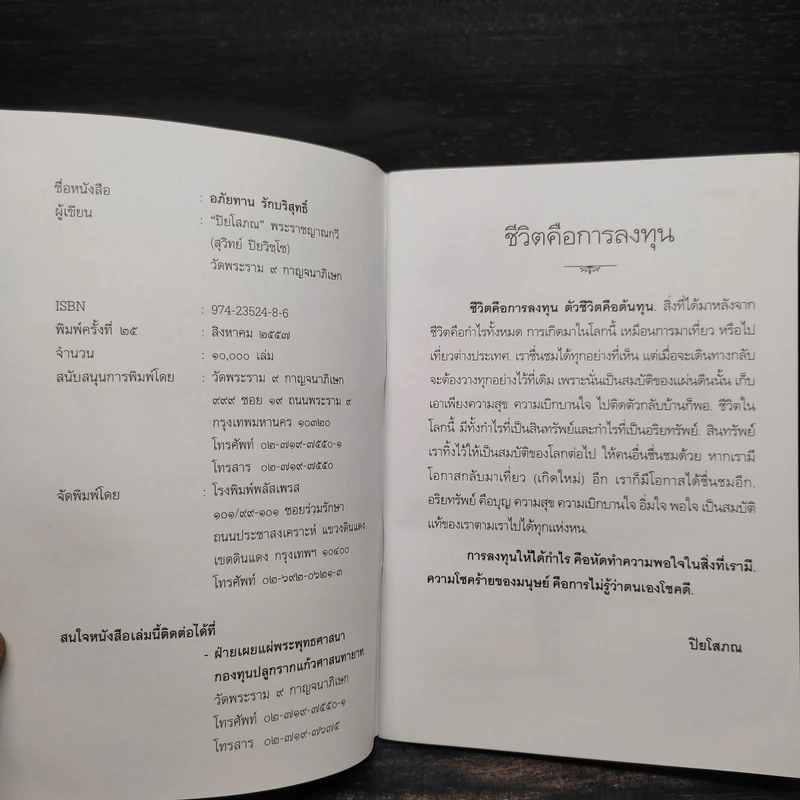 ชื่อหนังสือ : อภัยทาน รักบริสุทธิ์
ผู้เขียน : “ปิยโสภณ” พระราชญาณกวี
(สุวิทย์ ปิยวิชฺโช)
วัดพระราม ๙ กาญจนาภิเษก
ISBN : 974-23524-8-6
พิมพ์ครั้งที่ ๒๕ : สิงหาคม ๒๕๕๗
จำนวน : ๑๐,๐๐๐ เล่ม
สนับสนุนการพิมพ์โดย : วัดพระราม ๙ กาญจนาภิเษก
๙๙๙ ซอย ๑๙ ถนนพระราม ๙
กรุงเทพมหานคร ๑๐๓๒๐
โทรศัพท์ ๐๒-๗๑๙-๗๕๕๐-๑
โทรสาร ๐๒-๗๑๙-๗๕๕๐
จัดพิมพ์โดย : โรงพิมพ์พลัสเพรส
๑๐๑/๙๙-๑๐๑ ซอยร่วมรักษา
ถนนประชาสงเคราะห์ แขวงดินแดง
เขตดินแดง กรุงเทพฯ ๑๐๔๐๐
โทรศัพท์ ๐๒-๖๙๒-๐๖๒๑-๓
สนใจหนังสือเล่มนี้ติดต่อได้ที่
- ฝ่ายเผยแผ่พระพุทธศาสนา
กองทุนปลูกรากแก้วศาสนทายาท
วัดพระราม ๙ กาญจนาภิเษก
โทรศัพท์ ๐๒-๗๑๙-๗๕๕๐-๑
โทรสาร ๐๒-๗๑๙-๗๖๗๕
ชีวิตคือการลงทุน
ชีวิตคือการลงทุน ตัวชีวิตคือต้นทุน. สิ่งที่ได้มาหลังจาก
ชีวิตคือกำไรทั้งหมด การเกิดมาในโลกนี้ เหมือนการมาเที่ยว หรือไป
เที่ยวต่างประเทศ. เราชื่นชมได้ทุกอย่างที่เห็น แต่เมื่อจะเดินทางกลับ
จะต้องวางทุกอย่างไว้ที่เดิม เพราะนั่นเป็นสมบัติของแผ่นดินนั้น เก็บ
เอาเพียงความสุข ความเบิกบานใจ ไปติดตัวกลับบ้านก็พอ. ชีวิตใน
โลกนี้ มีทั้งกำไรที่เป็นสินทรัพย์และกำไรที่เป็นอริยทรัพย์. สินทรัพย์
เราทิ้งไว้ให้เป็นสมบัติของโลกต่อไป ให้คนอื่นชื่นชมด้วย หากเรามี
โอกาสกลับมาเที่ยว (เกิดใหม่) อีก เราก็มีโอกาสได้ชื่นชมอีก.
อริยทรัพย์ คือบุญ ความสุข ความเบิกบานใจ อิ่มใจ พอใจ เป็นสมบัติ
แท้ของเราตามเราไปได้ทุกแห่งหน.
การลงทุนให้ได้กำไร คือหัดทำความพอใจในสิ่งที่เรามี.
ความโชคร้ายของมนุษย์ คือการไม่รู้ว่าตนเองโชคดี.
ปิยโสภณ